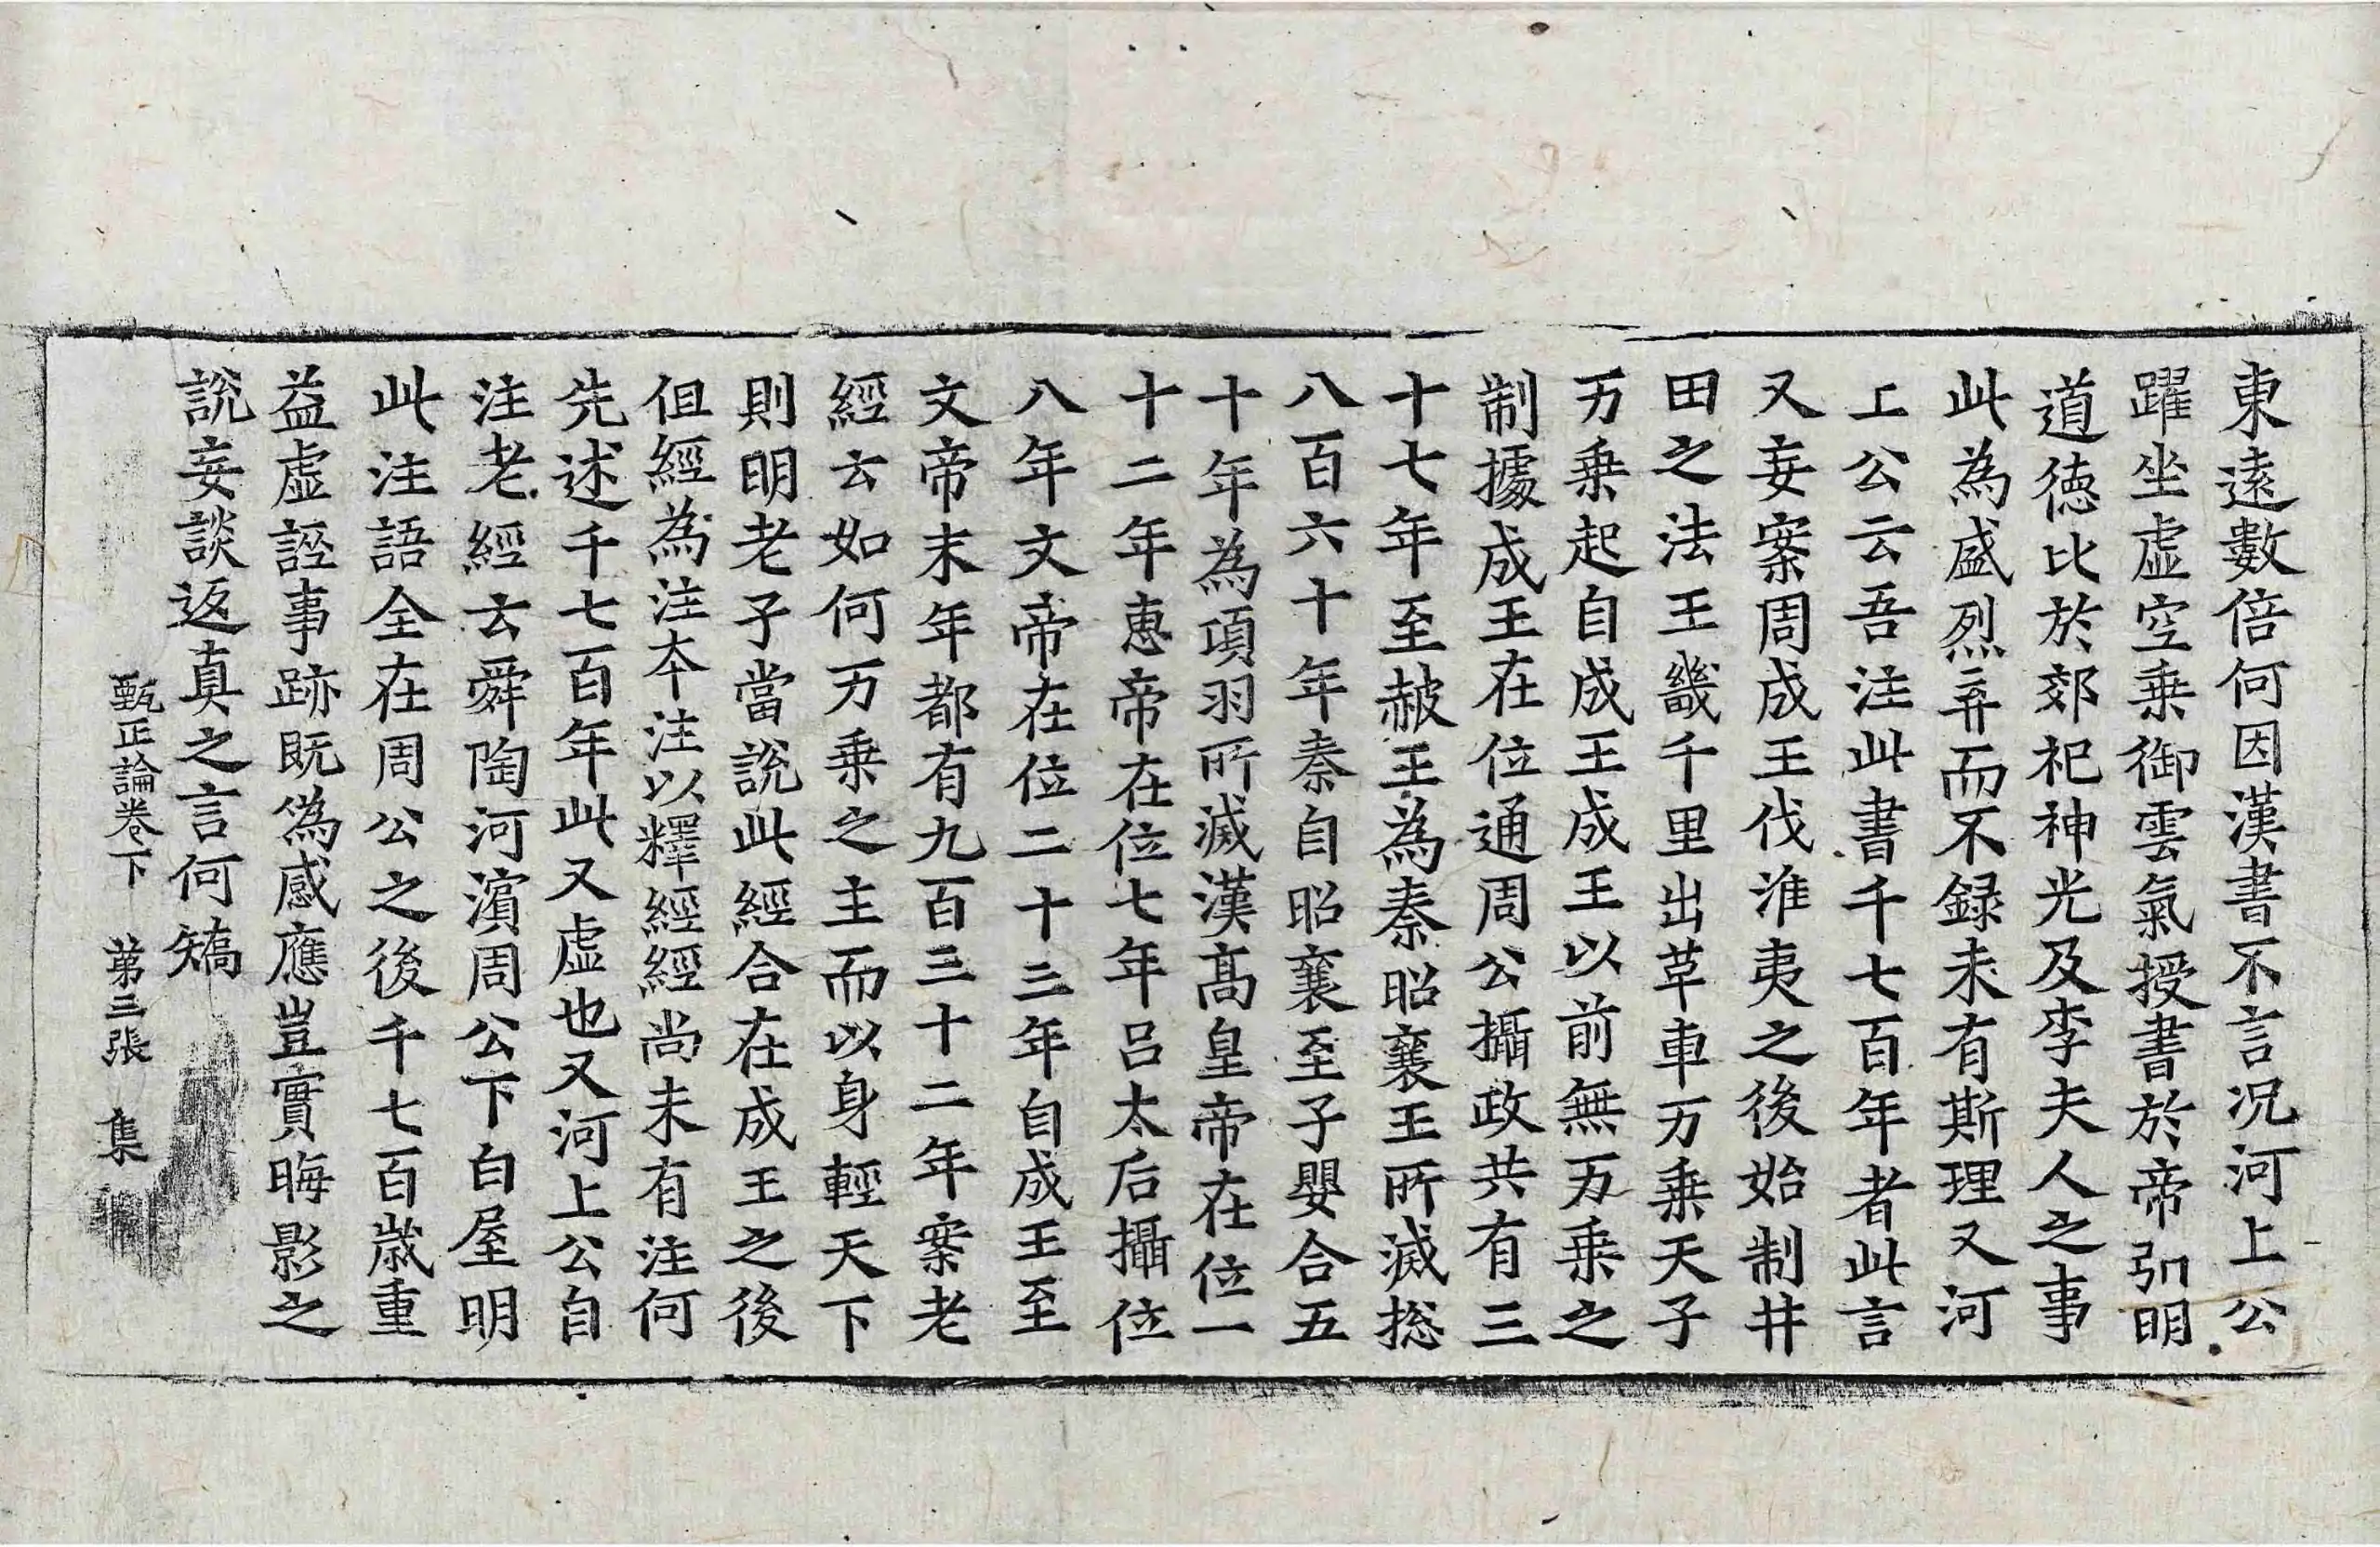 東遠數倍何因漢書不言況河上公
躍坐虛空乗御雲氣授書於帝引明
道徳比於郊祀神光及李夫人之事
此為盛烈弃而不録未有斯理又河
上公云吾注此書千七百年者此言
又妄案周成王伐淮夷之後始制井
田之法王畿千里出革車万乗天子
万乗起自成王成王以前無万乗之
制據成王在位通周公攝政共有三
十七年至赧王為秦昭襄王所滅揔
八百六十年秦自昭襄至子嬰合五
十年為項羽所滅漢髙皇帝在位一
十二年惠帝在位七年吕太后攝位
八年文帝在位二十三年自成王至
文帝末年都有九百三十二年案老
經云如何万乗之主而以身輕天下
則明老子當說此經合在成王之後
但經為注夲注以釋經經尚未有注何
先述千七百年此又虛也又河上公自
注老經云舜陶河濵周公下白屋明
此注語全在周公之後千七百歳重
益虛誣事跡既偽感應豈實晦影之
說妄談返真之言何矯
甄正論卷下　第三張　集